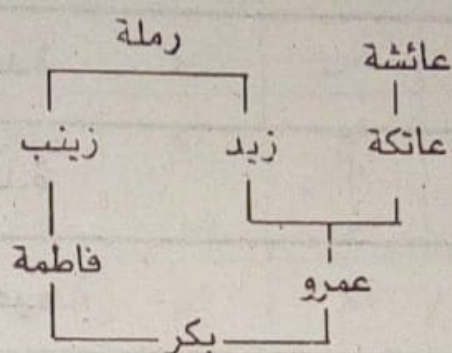 رملة
عائشة
زينب زيد عاتكة
فاطمة
عمرو
بكر